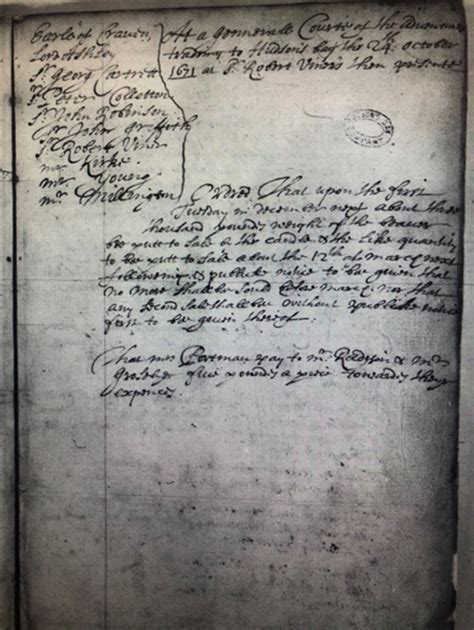 Earle of Craven,
Lord Ashley
Sr. Georg Cartrett
Sr. Peter Colleton
Sr. John Robinson
Sr. John Griffith
Sr. Robert Viner
mr. Kirke
mr. Young
mr. Millington
At a Gennerall Courte of the Adventurers
tradeing to Hudsons bay the 24th. October
1671 at Sr. Robert Viners then presente
Ordred That upon the first
Tuesday in december next about three
thousand powndes weight of the beaver
be putt to sale by the candle & the like quantity
to be putt to sale about the 12th of march next
following, & publick notice to be given that
no more shall be sould before march, nor that
any second sale shall be without publike notice
first to be given thereof.
That mr Portman pay to mr. Radison & mr
Groselyer five powndes a piece towardes their
expences